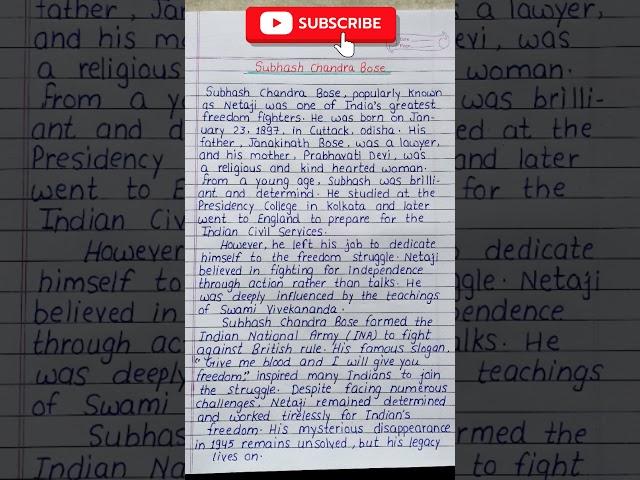 SUBSCRIBE
Subhash Chandra Bose
Subhash Chandra Bose, popularly known
as Netaji was one of India's greatest
freedom fighters. He was born on Jan-
uary 23, 1897, in Cuttack, odisha. His
father, Janakinath Bose, was a lawyer,
and his mother, Prabhavati Devi, was
a religious and kind hearted woman.
From a young age, Subhash was brilli-
ant and determind. He studied at the
Presidency College in Kolkata and later
went to England to prepare for the
Indian Civil Services.
However, he left his job to dedicate
himself to the freedom struggle. Netaji
believed in fighting for Independence
through action rather than talks. He
was deeply influenced by the teachings
of Swami Vivekananda.
Subhash Chandra Bose formed the
Indian National Army (INA) to fight
against British rule. His famous slogan,
"Give me blood and I will give you
freedom," inspired many Indians to join
the struggle. Despite facing numerous
challenges, Netaji remained determined
and worked tirelessly for Indian's
freedom. His mysterious disappearance
in 1945 remains unsolved, but his legacy
lives on.